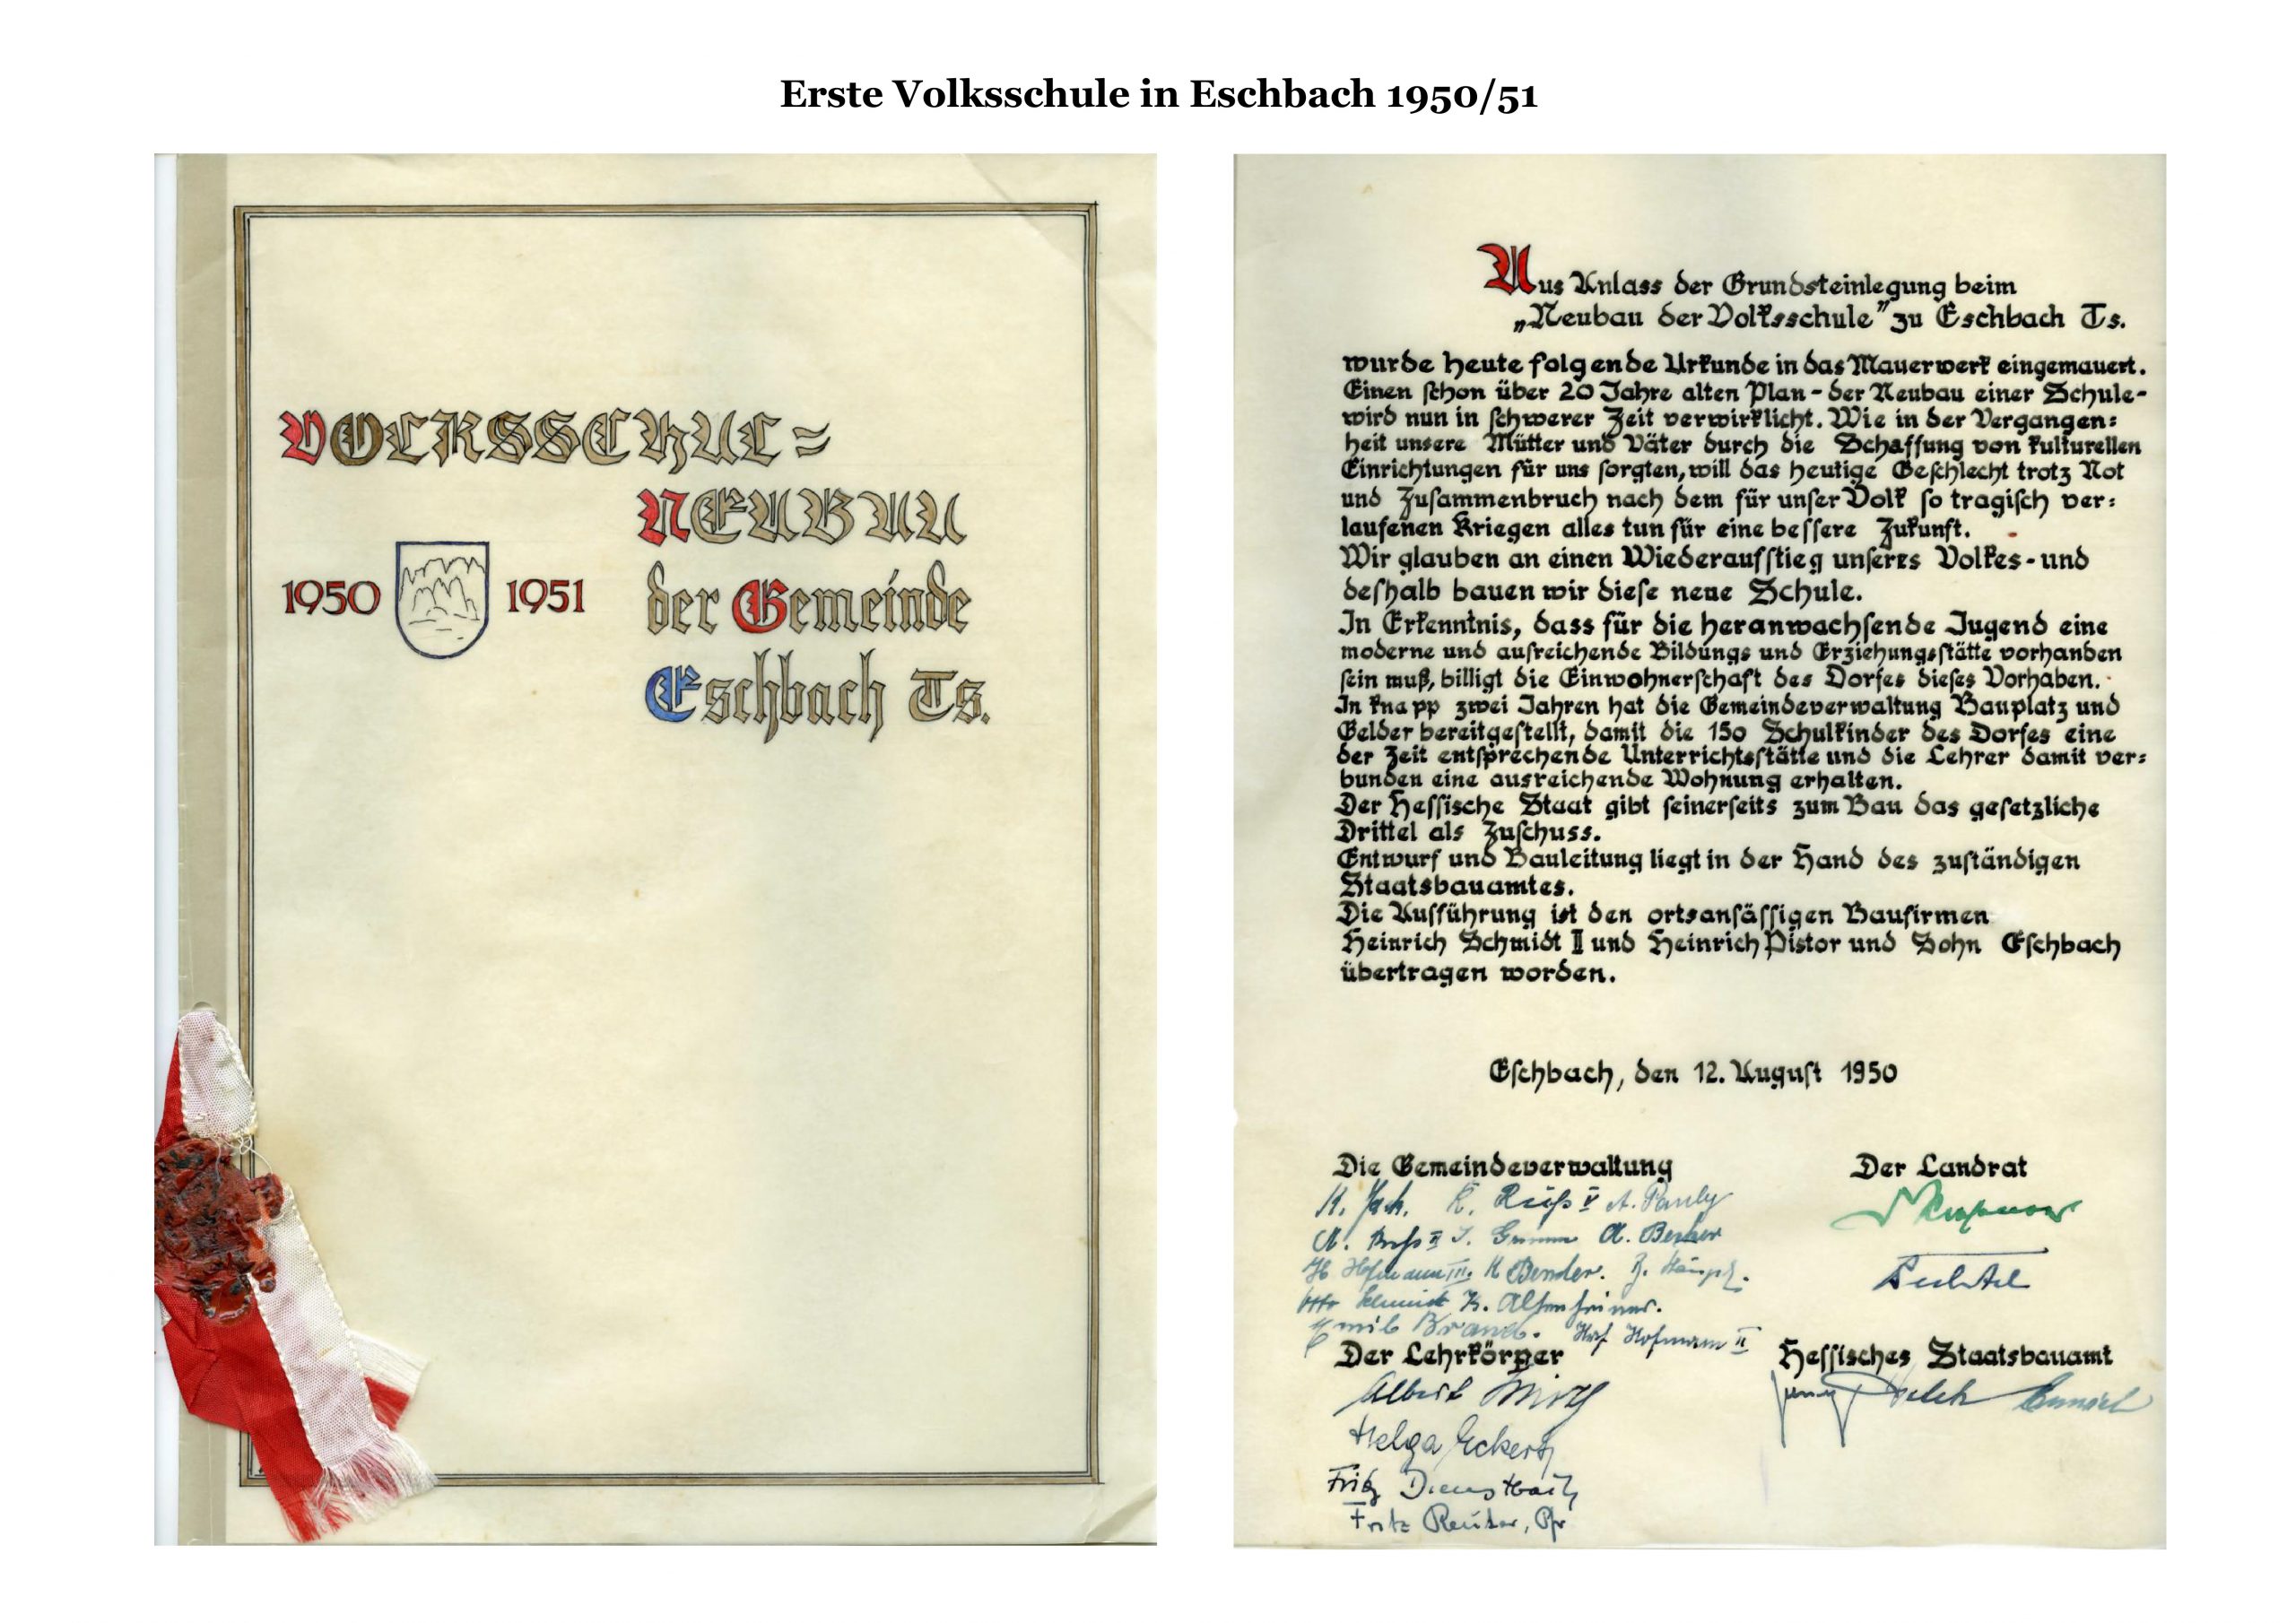 Erste Volksschule in Eschbach 1950/51
VOLKSSCHUL=
NEUBAU
1950 1951
der Gemeinde
Eschbach Ts.
Aus Anlass der Grundsteinlegung beim
„Neubau der Volksschule" zu Eschbach Ts.
wurde heute folgende Urkunde in das Mauerwerk eingemauert.
Einen ſchon über 20 Jahre alten Plan - der Neubau einer Schule -
wird nun in ſchwerer Zeit verwirklicht. Wie in der Vergangen=
heit unsere Mütter und Väter durch die Schaffung von kulturellen
Einrichtungen für uns ſorgten, will das heutige Geſchlecht trotz Not
und Zuſammenbruch nach dem für unſer Volk ſo tragiſch ver=
laufenen Kriegen alles tun für eine beſſere Zukunft.
Wir glauben an einen Wiederaufſtieg unſeres Volkes - und
deſhalb bauen wir dieſe neue Schule.
In Erkenntnis, dass für die heranwachſende Jugend eine
moderne und auſreichende Bildungs und Erziehungsſtätte vorhanden
ſein muß, billigt die Einwohnerſchaft des Dorfes dieſes Vorhaben.
In knapp zwei Jahren hat die Gemeindeverwaltung Bauplatz und
Gelder bereitgeſtellt, damit die 150 Schulkinder des Dorfes eine
der Zeit entſprechende Unterrichtsſtätte und die Lehrer damit ver=
bunden eine ausreichende Wohnung erhalten.
Der Heſſische Staat gibt ſeinerſeits zum Bau das geſetzliche
Drittel als Zuſchuss.
Entwurf und Bauleitung liegt in der Hand des zuſtändigen
Staatsbauamtes.
Die Ausführung ist den ortsanſäſſigen Baufirmen
Heinrich Schmidt II und Heinrich Pistor und Sohn Eſchbach
übertragen worden.
Eſchbach, den 12. Auguſt 1950
Die Gemeindeverwaltung Der Landrat
K. V A. Pauly
II A. Becker
H. Hofmann III. K. Bender.
Otto Schmidt K.
Emil Brand. Hofmann II
Der Lehrkörper Heſſisches Staatsbauamt
Albert
Helga Eckert
Fritz Dienstbach
Fritz Reuter, Pfr